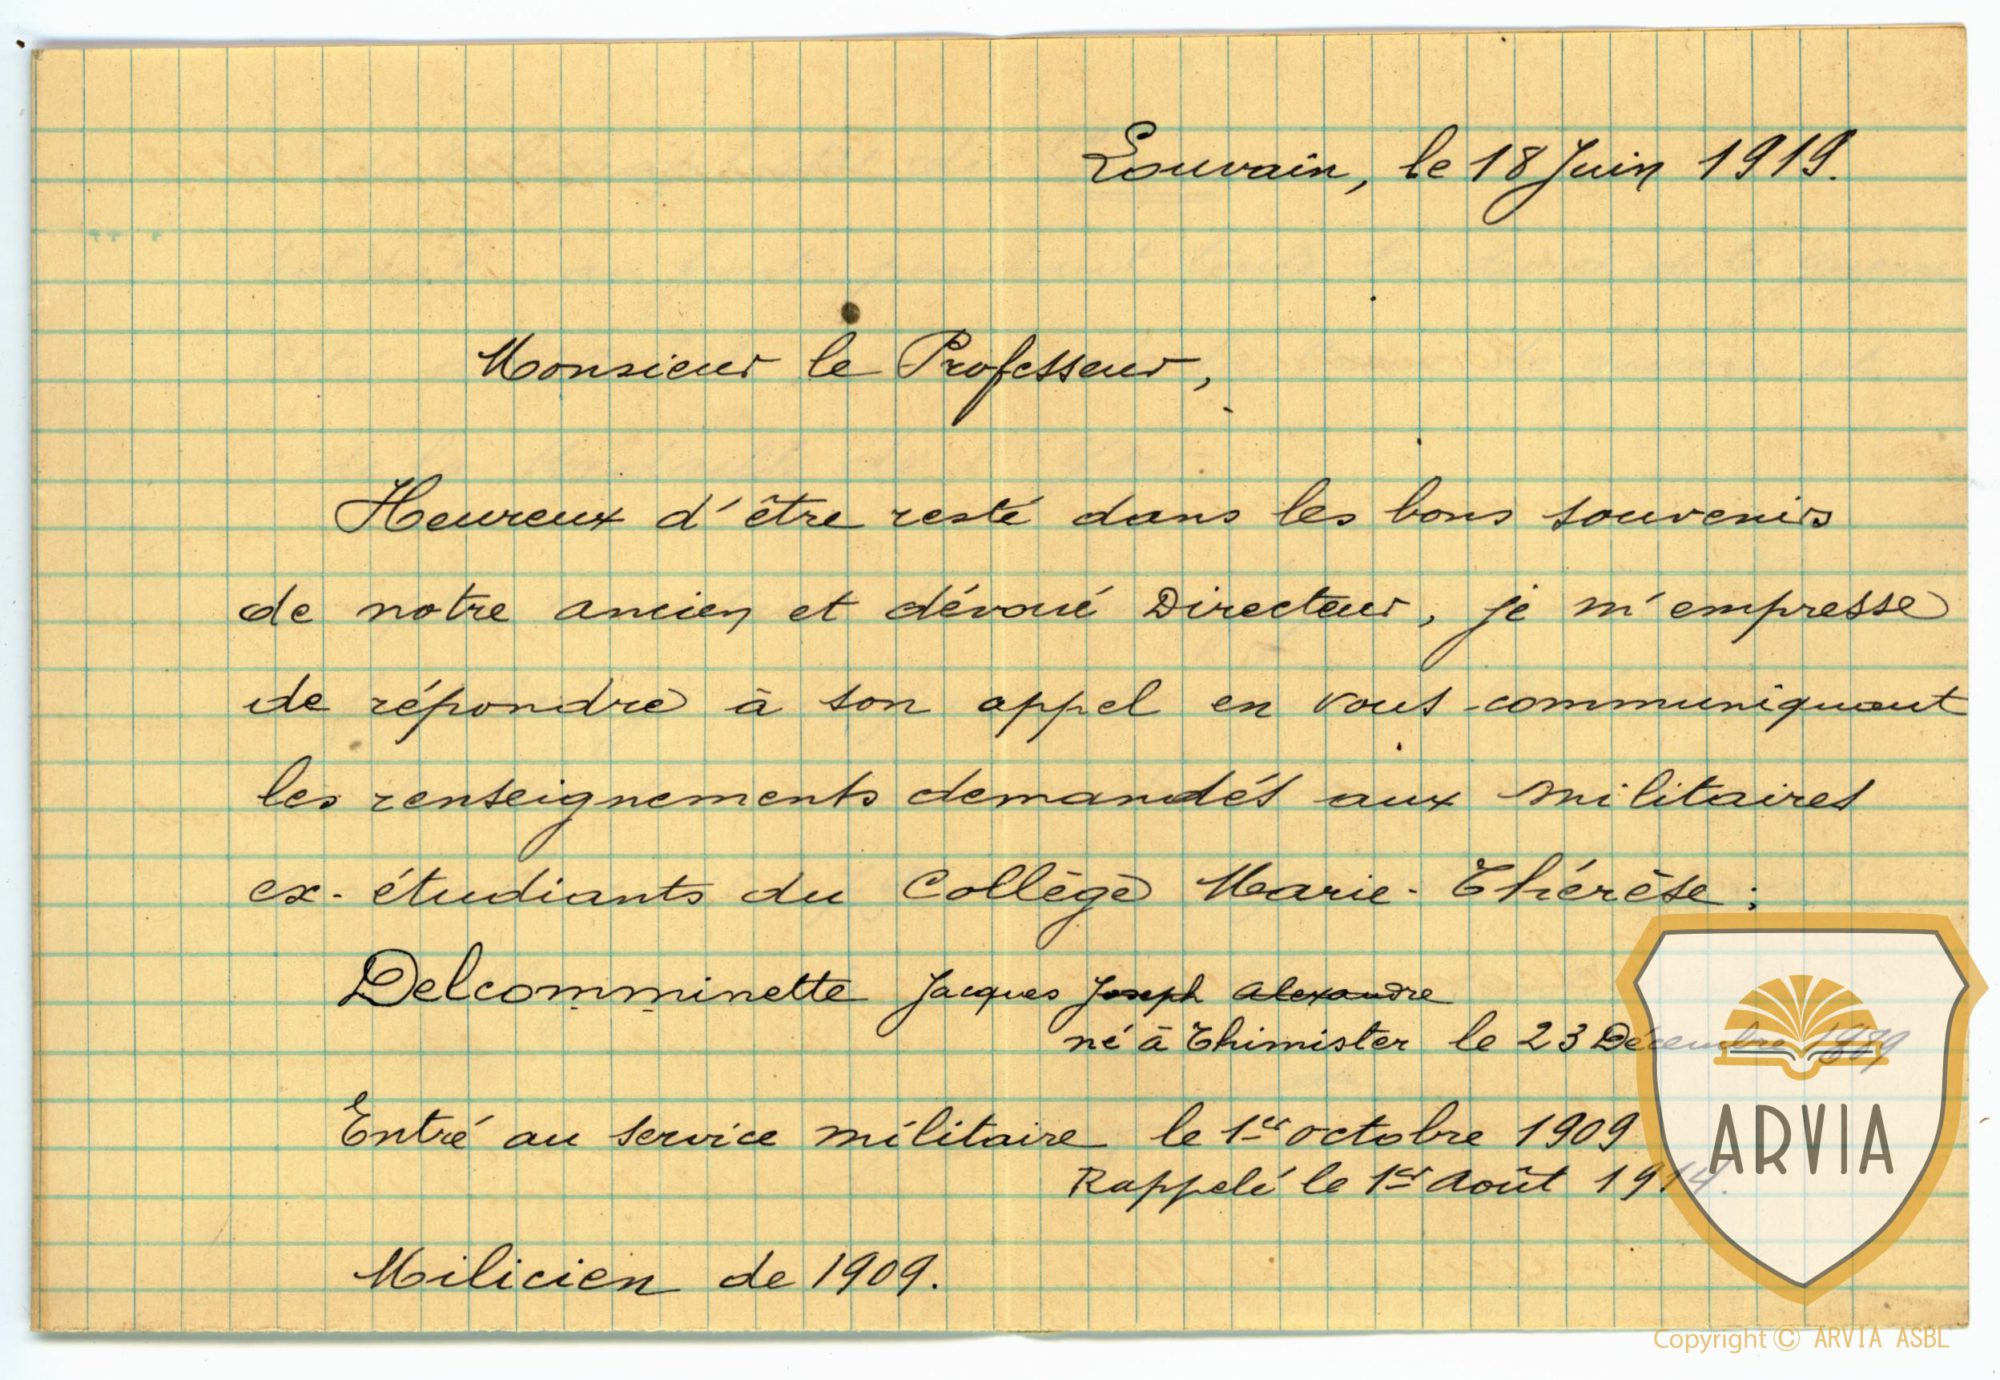 Louvain, le 18 Juin 1919.
Monsieur le Professeur,
Heureux d'être resté dans les bons souvenirs
de notre ancien et dévoué Directeur, je m'empresse
de répondre à son appel en vous communiquant
les renseignements demandés aux militaires
ex-étudiants du Collège Marie-Thérèse :
Delcomminette Jacques Joseph Alexandre
né à Thimister le 23 Décembre 1889
Entré au service militaire le 1er octobre 1909
Rappelé le 1er Août 1914.
Milicien de 1909.
ARVIA
Copyright © ARVIA ASBL